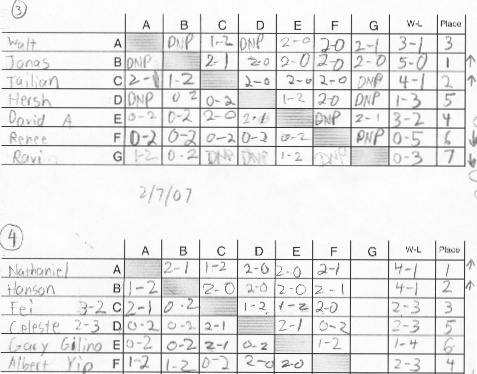 3
A B C D E F G W-L Place
Walt A DNP 1-2 DNP 2-0 2-0 2-1 3-1 3
Jonas B DNP 2-1 2-0 2-0 2-0 2-0 5-0 1
C 2-1 1-2 2-0 2-0 2-0 DNP 4-1 2
Hersh D DNP 0-2 0-2 1-2 2-0 DNP 1-3 5
David A E 0-2 0-2 2-0 2-1 DNP 2-1 3-2 4
Renee F 0-2 0-2 0-2 0-2 0-2 DNP 0-5 6
Ravi G 1-2 0-2 DNP DNP 1-2 DNP 0-3 7
2/7/07
4
A B C D E F G W-L Place
Nathaniel A 2-1 1-2 2-0 2-0 2-1 4-1 1
Hanson B 1-2 2-0 2-0 2-0 2-1 4-1 2
Fei 3-2 C 2-1 0-2 1-2 1-2 2-0 2-3 3
Celeste 2-3 D 0-2 0-2 2-1 2-1 0-2 2-3 5
Gary Gilino E 0-2 0-2 2-1 0-2 1-2 1-4 6
Albert Yip F 1-2 1-2 0-2 2-0 2-0 2-3 4